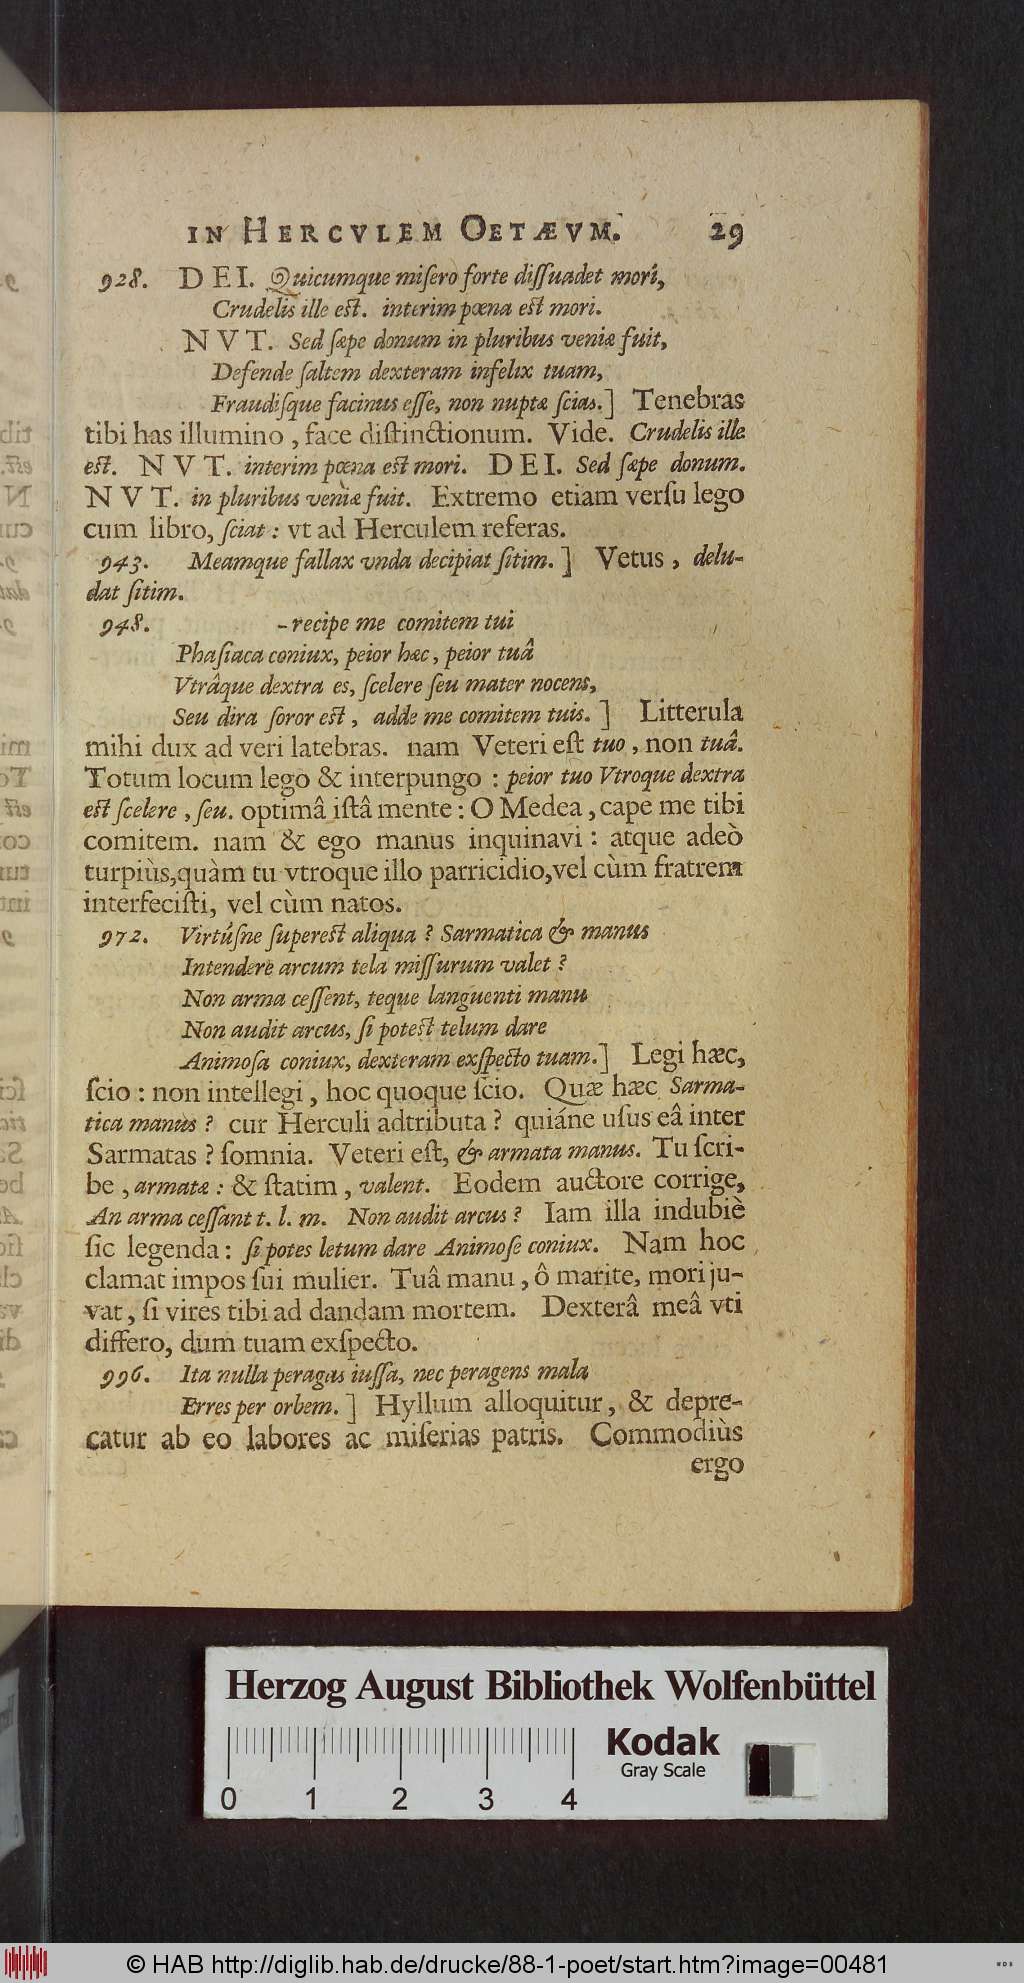 IN HERCVLEM OETÆVM. 29
928. DEI. Quicumque miſero forte diſſuadet mori,
Crudelis ille eſt. interim pœna eſt mori.
NVT. Sed ſæpe donum in pluribus veniæ fuit,
Defende ſaltem dexteram infelix tuam,
Fraudiſque facinus eſſe, non nuptæ ſcias.] Tenebras
tibi has illumino, face diſtinctionum. Vide. Crudelis ille
eſt. NVT. interim pœna eſt mori. DEI. Sed ſæpe donum.
NVT. in pluribus veniæ fuit. Extremo etiam verſu lego
cum libro, ſciat: vt ad Herculem referas.
943. Meamque fallax vnda decipiat ſitim.] Vetus, delu-
dat ſitim.
948. -recipe me comitem tui
Phaſiaca coniux, peior hæc, peior tuâ
Vtrâque dextra es, ſcelere ſeu mater nocens,
Seu dira ſoror eſt, adde me comitem tuis.] Litterula
mihi dux ad veri latebras. nam Veteri eſt tuo, non tuâ.
Totum locum lego & interpungo: peior tuo Vtroque dextra
eſt ſcelere, ſeu. optimâ iſtâ mente: O Medea, cape me tibi
comitem. nam & ego manus inquinavi: atque adeò
turpiùs, quàm tu vtroque illo parricidio, vel cùm fratrem
interfeciſti, vel cùm natos.
972. Virtúſne ſupereſt aliqua? Sarmatica & manus
Intendere arcum tela miſſurum valet?
Non arma ceſſent, teque languenti manu
Non audit arcus, ſi poteſt telum dare
Animoſa coniux, dexteram exſpecto tuam.] Legi hæc,
ſcio: non intellegi, hoc quoque ſcio. Quæ hæc Sarma-
tica manus? cur Herculi adtributa? quiáne uſus eâ inter
Sarmatas? ſomnia. Veteri eſt, & armata manus. Tu ſcri-
be, armatæ: & ſtatim, valent. Eodem auctore corrige,
An arma ceſſant t. l. m. Non audit arcus? Iam illa indubiè
ſic legenda: ſi potes letum dare Animoſe coniux. Nam hoc
clamat impos ſui mulier. Tuâ manu, ô marite, mori ju-
vat, ſi vires tibi ad dandam mortem. Dexterâ meâ vti
differo, dum tuam exſpecto.
996. Ita nulla peragas iuſſa, nec peragens mala
Erres per orbem.] Hyllum alloquitur, & depre-
catur ab eo labores ac miſerias patris. Commodiùs
ergo
Herzog August Bibliothek Wolfenbüttel
Kodak
Gray Scale
0 1 2 3 4
© HAB http://diglib.hab.de/drucke/88-1-poet/start.htm?image=00481